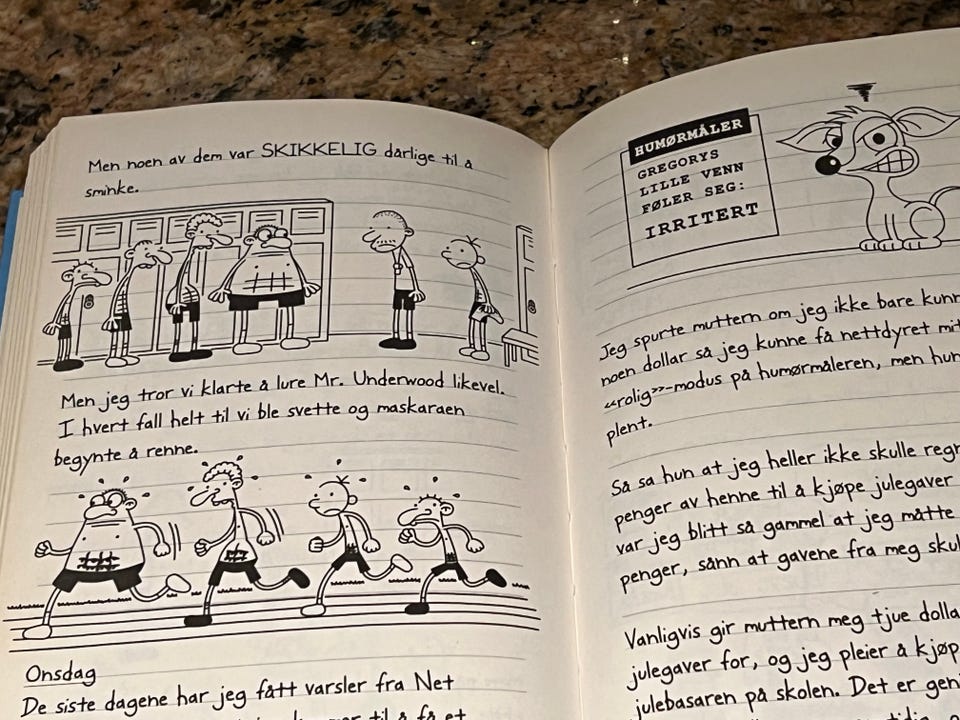 Men noen av dem var SKIKKELIG dårlige til å
sminke.
Men jeg tror vi klarte å lure Mr. Underwood likevel.
I hvert fall helt til vi ble svette og maskaraen
begynte å renne.
Onsdag
De siste dagene har jeg fått varsler fra Net
til å få et
HUMØRMÅLER
GREGORYS
LILLE VENN
FØLER SEG:
IRRITERT
Jeg spurte muttern om jeg ikke bare kunn
noen dollar så jeg kunne få nettdyret mit
«rolig»-modus på humørmåleren, men hun
plent.
Så sa hun at jeg heller ikke skulle regn
penger av henne til å kjøpe julegaver
var jeg blitt så gammel at jeg måtte
penger, sånn at gavene fra meg skul
Vanligvis gir muttern meg tjue dolla
julegaver for, og jeg pleier å kjøp
julebasaren på skolen. Det er geni